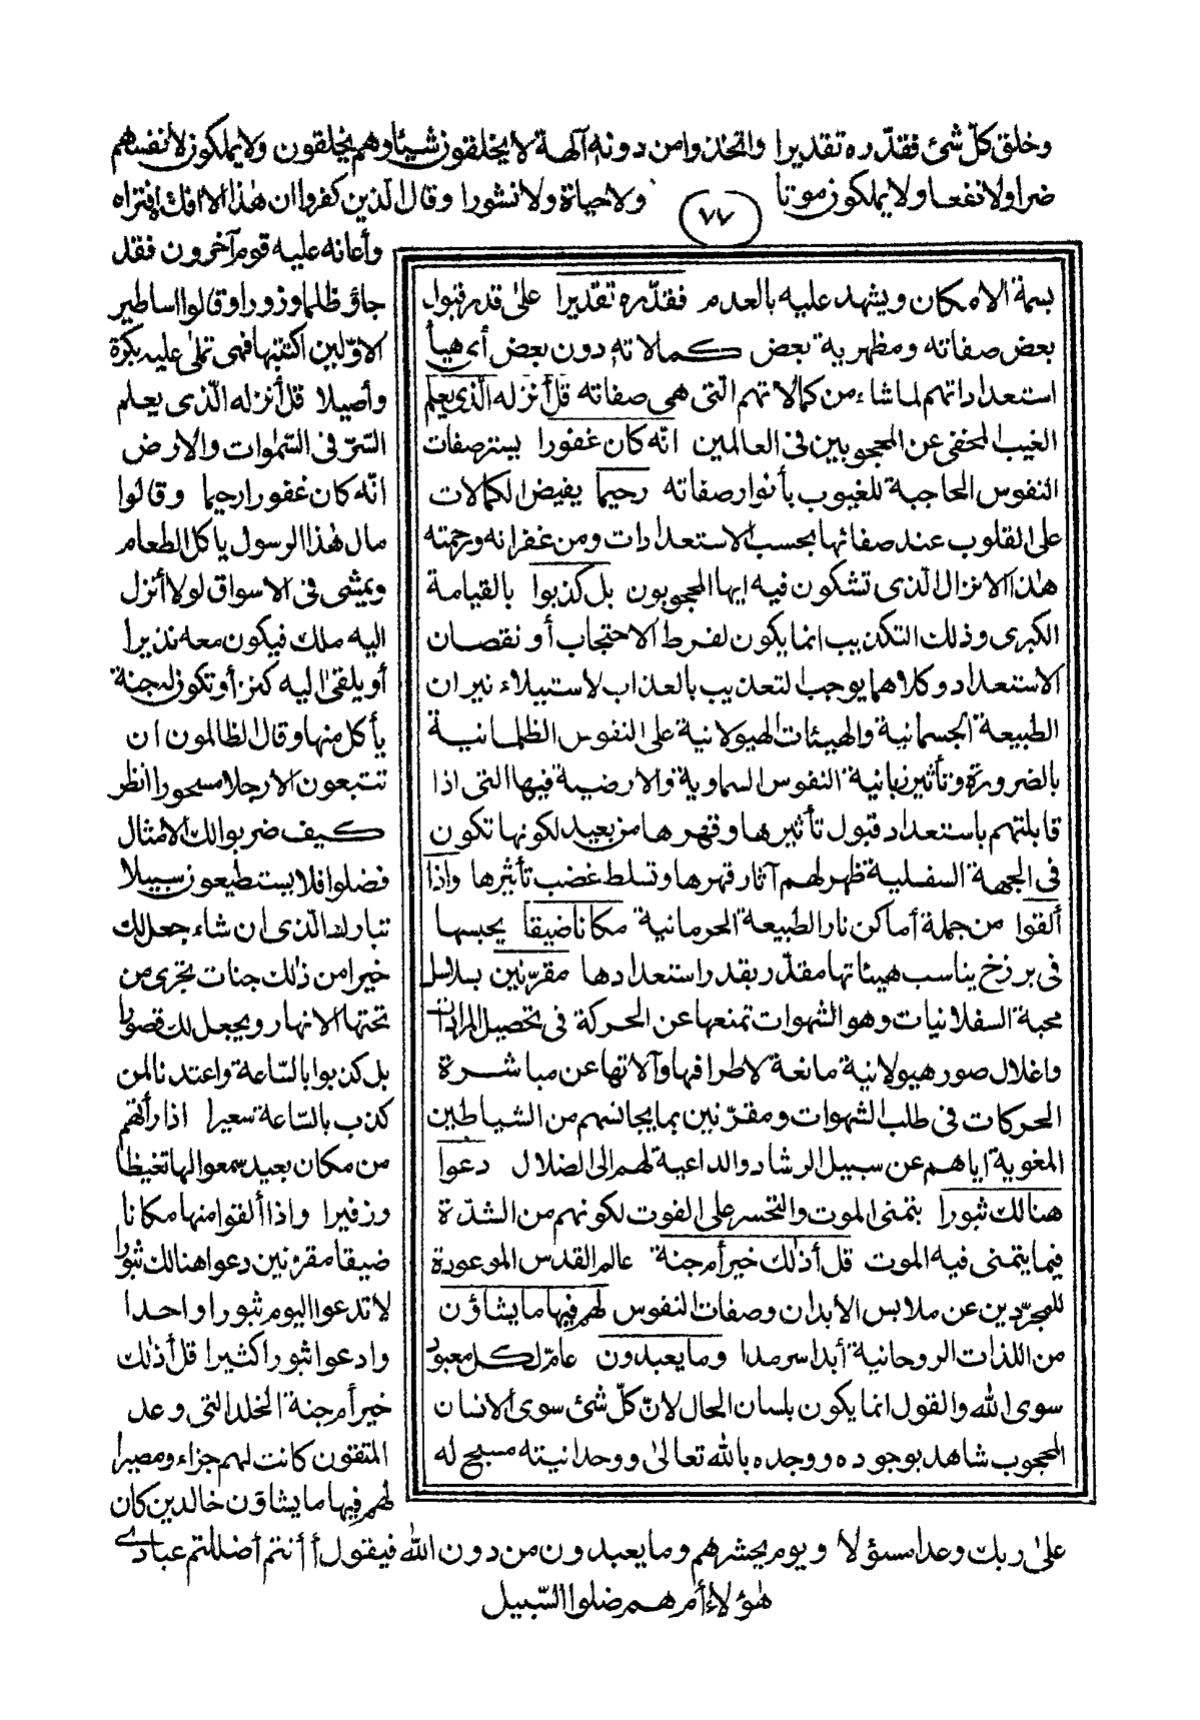 وخلق كلّ شئ فقدّره تقديرا واتخذوا من دونه آلهة لا يخلقون شيئا وهم يخلقون ولا يملكون لأنفسهم
ضرا ولا نفعا ولا يملكون موتا ولا حياة ولا نشورا وقال الذين كفروا ان هٰذا الا افك افتراه
٧٧
وأعانه عليه قوم آخرون فقد
جاؤ ظلما وزورا وقالوا اساطير
الاوّلين اكتتبها فهى تملىٰ عليه بكرة
وأصيلا قل أنزله الّذى يعلم
السّرّ فى السّمٰوات والارض
انّه كان غفورا رحيما وقالوا
مال هٰذا الرسول يأكل الطعام
ويمشى فى الاسواق لولا أنزل
اليه ملك فيكون معه نذيرا
أو يلقىٰ اليه كنز أو تكون له جنة
يأكل منها وقال الظالمون ان
تتبعون الا رجلا مسحورا انظر
كيف ضربوا لك الامثال
فضلوا فلا يستطيعون سبيلا
تبارك الّذى ان شاء جعل لك
خيرا من ذٰلك جنات تجرى من
تحتها الانهار ويجعل لك قصورا
بل كذبوا بالسّاعة واعتدنا لمن
كذب بالسّاعة سعيرا اذا رأتهم
من مكان بعيد سمعوا لها تغيظا
وزفيرا واذا ألقوا منها مكانا
ضيقا مقرّنين دعوا هنالك ثبورا
لا تدعوا اليوم ثبورا واحدا
وادعوا ثبورا كثيرا قل أذٰلك
خير أم جنة الخلد التى وعد
المتقون كانت لهم جزاء ومصيرا
لهم فيها ما يشاؤن خالدين كان
بسمة الامكان ويشهد عليه بالعدم فقدّره تقديرا علىٰ قدر قبول
بعض صفاته ومظهرية بعض كمالاته دون بعض أى هيأ
استعداداتهم لما شاء من كمالاتهم الّتى هى صفاته قل أنزله الّذى يعلم
الغيب المخفى عن المحجوبين فى العالمين انّه كان غفورا يستر صفات
النفوس الحاجبة للغيوب بأنوار صفاته رحيما يفيض الكمالات
على القلوب عند صفائها بحسب الاستعدادات ومن غفرانه ورحمته
هٰذا الانزال الّذى تشكون فيه ايها المحجوبون بل كذبوا بالقيامة
الكبرى وذلك التكذيب انما يكون لفرط الاحتجاب أو نقصان
الاستعداد وكلاهما يوجب التعذيب بالعذاب لاستيلاء نيران
الطبيعة الجسمانية والهيئات الهيولانية على النفوس الظلمانية
بالضرورة وتأثير زبانية النفوس السماوية والارضية فيها التى اذا
قابلتهم باستعداد قبول تأثيرها وقهرها من بعيد لكونها تكون
فى الجهة السفلية ظهر لهم آثار قهرها وتسلط غضب تأثيرها واذا
ألقوا من جملة أماكن نار الطبيعة الحرمانية مكانا ضيقا يحبسها
فى برزخ يناسب هيئاتها مقدّر بقدر استعدادها مقرّنين بسلاسل
محبة السفلانيات وهو الشهوات تمنعها عن الحركة فى تحصيل المرادات
واغلال صور هيولانية مانعة لاطرافها وآلاتها عن مباشرة
الحركات فى طلب الشهوات ومقرّنين بما يجانسهم من الشياطين
المغوية اياهم عن سبيل الرشاد والداعية لهم الى الضلال دعوا
هنالك ثبورا بتمنى الموت والتحسر على الفوت لكونهم من الشدّة
فيما يتمنى فيه الموت قل أذلك خير أم جنة عالم القدس الموعودة
للمجرّدين عن ملابس الأبدان وصفات النفوس لهم فيها ما يشاؤن
من اللذات الروحانية أبدا سرمدا وما يعبدون عامّ لكل معبود
سوى الله والقول انما يكون بلسان الحال لانّ كلّ شئ سوى الانسان
المحجوب شاهد بوجوده ووجده بالله تعالىٰ ووحدانيته مسبح له
علىٰ ربك وعدا مسؤلا ويوم يحشرهم وما يعبدون من دون الله فيقول أأنتم أضللتم عبادى
هٰؤلاء أم هم ضلوا السّبيل